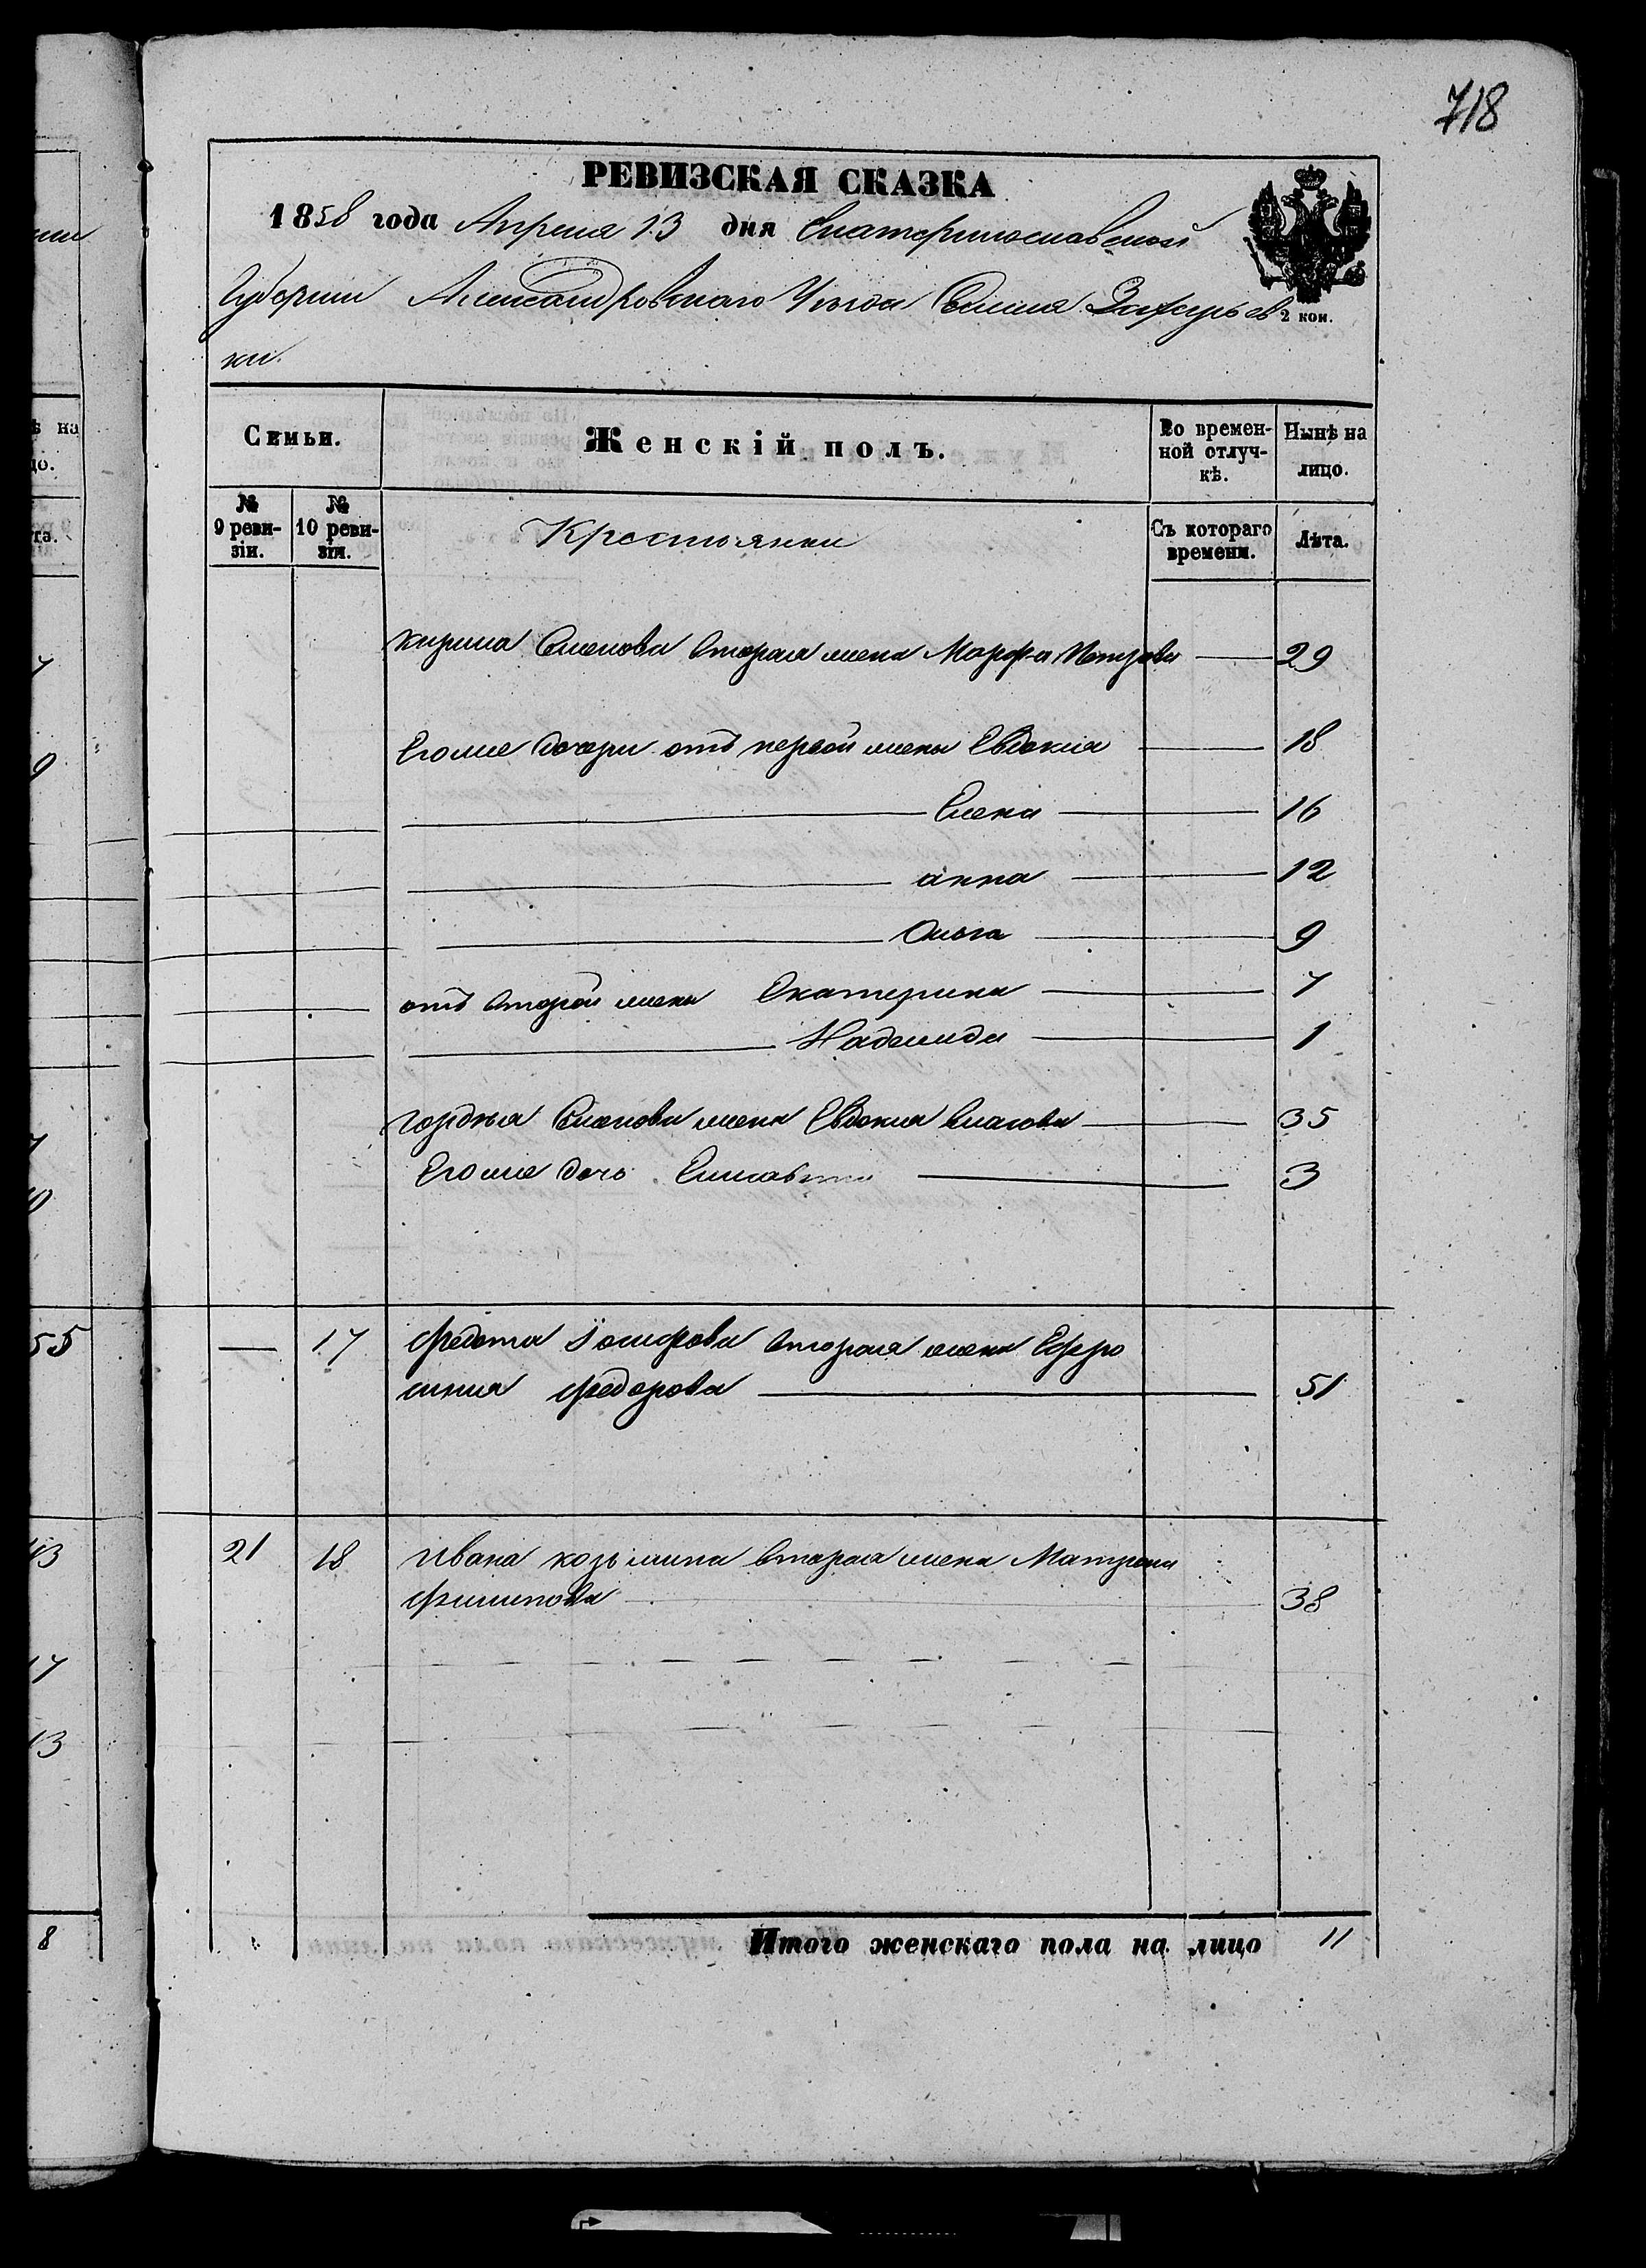 718
РЕВИЗСКАЯ СКАЗКА
1858 года Апреля 13 дня Екатеринославской
Губернии Александровскаго Уезда Селения Захарьев
ки.
2 коп.
Семьи.
Женскій полъ.
Во времен-
ной отлуч-
кѣ.
Нынѣ на
лицо.
№
9 реви-
зіи.
№
10 реви-
зіи.
Крестьянки
Съ котораго
времени.
Лѣта.
Кирила Семенова вторая жена Марфа Петрова 29
Егоже дочери отъ первой жены Евдокия 18
Елена 16
анна 12
Ольга 9
отъ второй жены Екатерина 7
Надежда 1
гордея Семенова жена Евдокия Власова 35
Егоже дочь Елисавета 3
— 17 Федота Іосифова вторая жена Ефро
синия Федорова 51
21 18 Ивана козьмина вторая жена Матрена
Филипова 38
Итого женскаго пола на лицо 11
55
13
17
13
8